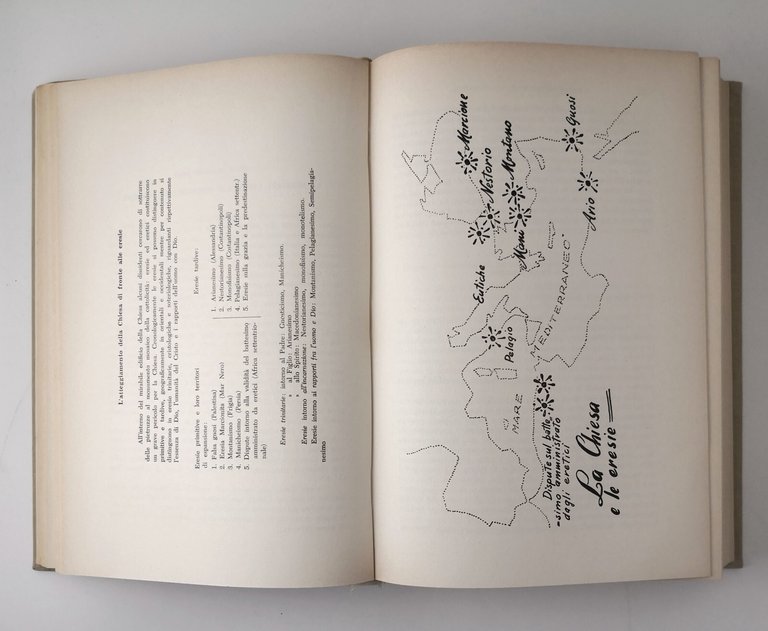 L'atteggiamento della Chiesa di fronte alle eresie
All'esterno del mirabile edificio della Chiesa alcuni dissidenti cercarono di sottrarre
delle pietruzze al monumento mosaico della cattolicità: eresie ed eretici costituiscono
un grave pericolo per la Chiesa. Cronologicamente le eresie si possono distinguere in
primitive e tardive, geograficamente in orientali e occidentali mentre per contenuto si
distinguono in eresie trinitarie, cristologiche e soteriologiche, riguardanti rispettivamente
l'essenza di Dio, l'umanità del Cristo e i rapporti dell'uomo con Dio.
Eresie primitive e loro territori
di espansione:
1. Falsa gnosi (Palestina)
2. Eresia Marcionita (Mar Nero)
3. Montanismo (Frigia)
4. Manicheismo (Persia)
5. Dispute intorno alla validità del battesimo
amministrato da eretici (Africa settentrio-
nale)
Eresie tardive:
1. Arianesimo (Alessandria)
2. Nestorianesimo (Costantinopoli)
3. Monofisismo (Costantinopoli)
4. Pelagianesimo (Italia e Africa settentr.)
5. Eresie sulla grazia e la predestinazione
Eresie trinitarie: intorno al Padre: Gnosticismo, Manicheismo.
» al Figlio: Arianesimo
» allo Spirito: Macedonianesimo
Eresie intorno all'incarnazione: Nestorianesimo, monofisismo, monotelismo.
Eresie intorno ai rapporti fra l'uomo e Dio: Montanismo, Pelagianesimo, Semipelagia-
nesimo
Marcione
Nestorio
Montano
Gnosi
Eutiche
Mani
Ario
Pelagio
MARE MEDITERRANEO
Dispute sul batte
-simo amministrato
dagli eretici
La Chiesa
e le eresie